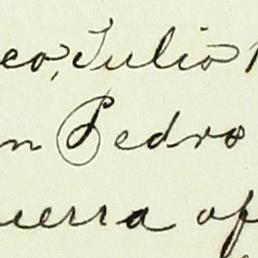 co, Julio
n Pedro
uerra of